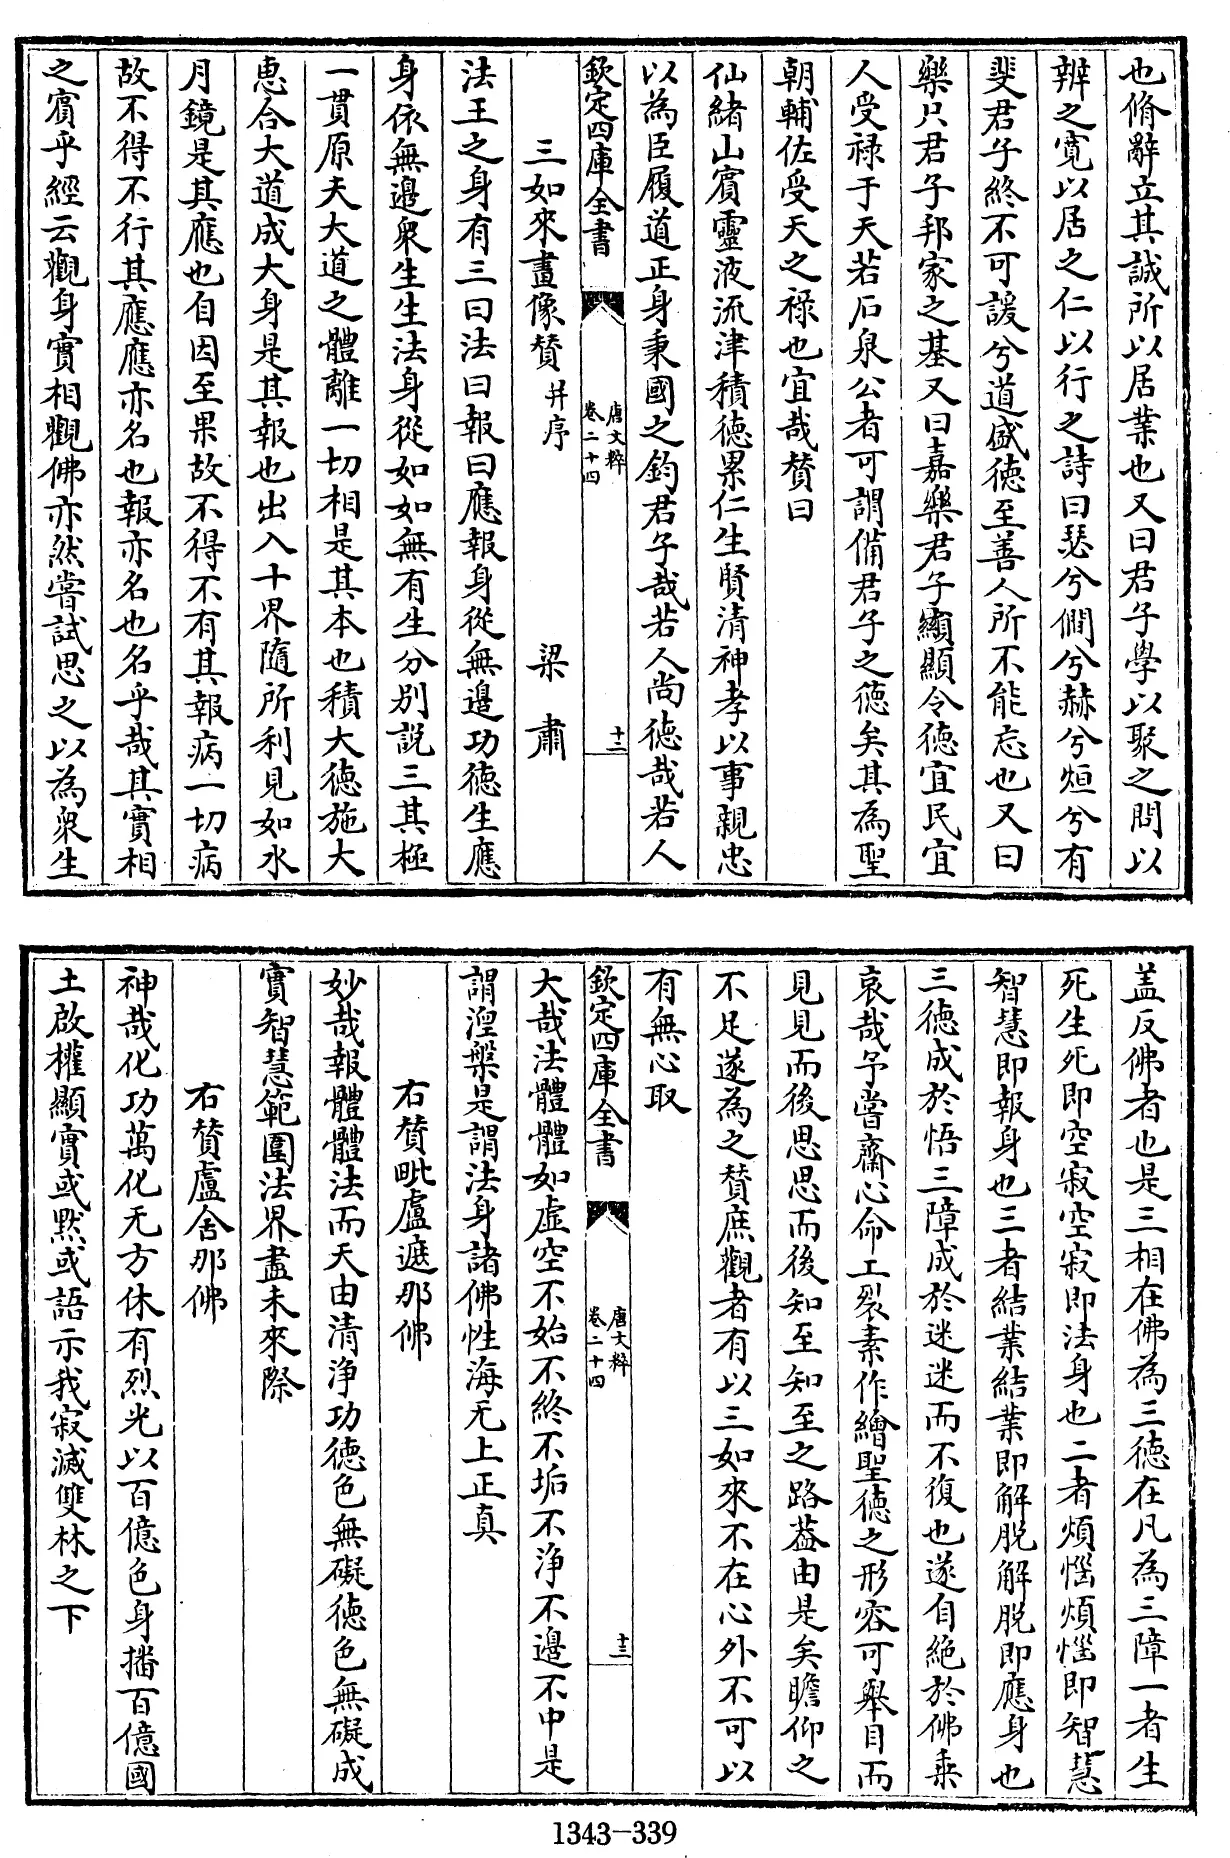 也脩辭立其誠所以居業也又曰君子學以聚之問以
辨之寛以居之仁以行之詩曰瑟兮僩兮赫兮烜兮有
斐君子終不可諼兮道盛徳至善人所不能忘也又曰
樂只君子邦家之基又曰嘉樂君子顯顯令徳宜民宜
人受禄于天若石泉公者可謂備君子之徳矣其為聖
朝輔佐受天之禄也宜哉賛曰
仙緒山賓靈液流津積徳累仁生賢清神孝以事親忠
以為臣履道正身秉國之鈞君子哉若人尚徳哉若人
欽定四庫全書 唐文粹 卷二十四 十二
三如來畫像賛并序 梁肅
法王之身有三曰法曰報曰應報身從無邉功徳生應
身依無邉衆生生法身從如如無有生分别説三其極
一貫原夫大道之體離一切相是其本也積大徳施大
恵合大道成大身是其報也出入十界隨所利見如水
月鏡是其應也自因至果故不得不有其報病一切病
故不得不行其應應亦名也報亦名也名乎哉其實相
之賔乎經云觀身實相觀佛亦然嘗試思之以為衆生
盖反佛者也是三相在佛為三徳在凡為三障一者生
死生死即空寂空寂即法身也二者煩惱煩惱即智慧
智慧即報身也三者結業結業即解脱解脱即應身也
三徳成於悟三障成於迷迷而不復也遂自絶於佛乗
哀哉予嘗齋心命工裂素作繪聖徳之形容可舉目而
見見而後思思而後知至知至之路葢由是矣瞻仰之
不足遂為之賛庶觀者有以三如來不在心外不可以
有無心取
欽定四庫全書 唐文粹 卷二十四 十三
大哉法體體如虚空不始不終不垢不浄不邉不中是
謂湼槃是謂法身諸佛性海无上正真
右賛毗盧遮那佛
妙哉報體體法而天由清浄功徳色無礙徳色無礙成
實智慧範圍法界盡未來際
右賛盧舍那佛
神哉化功萬化无方休有烈光以百億色身播百億國
土啟權顯實或黙或語示我寂滅雙林之下
1343-339